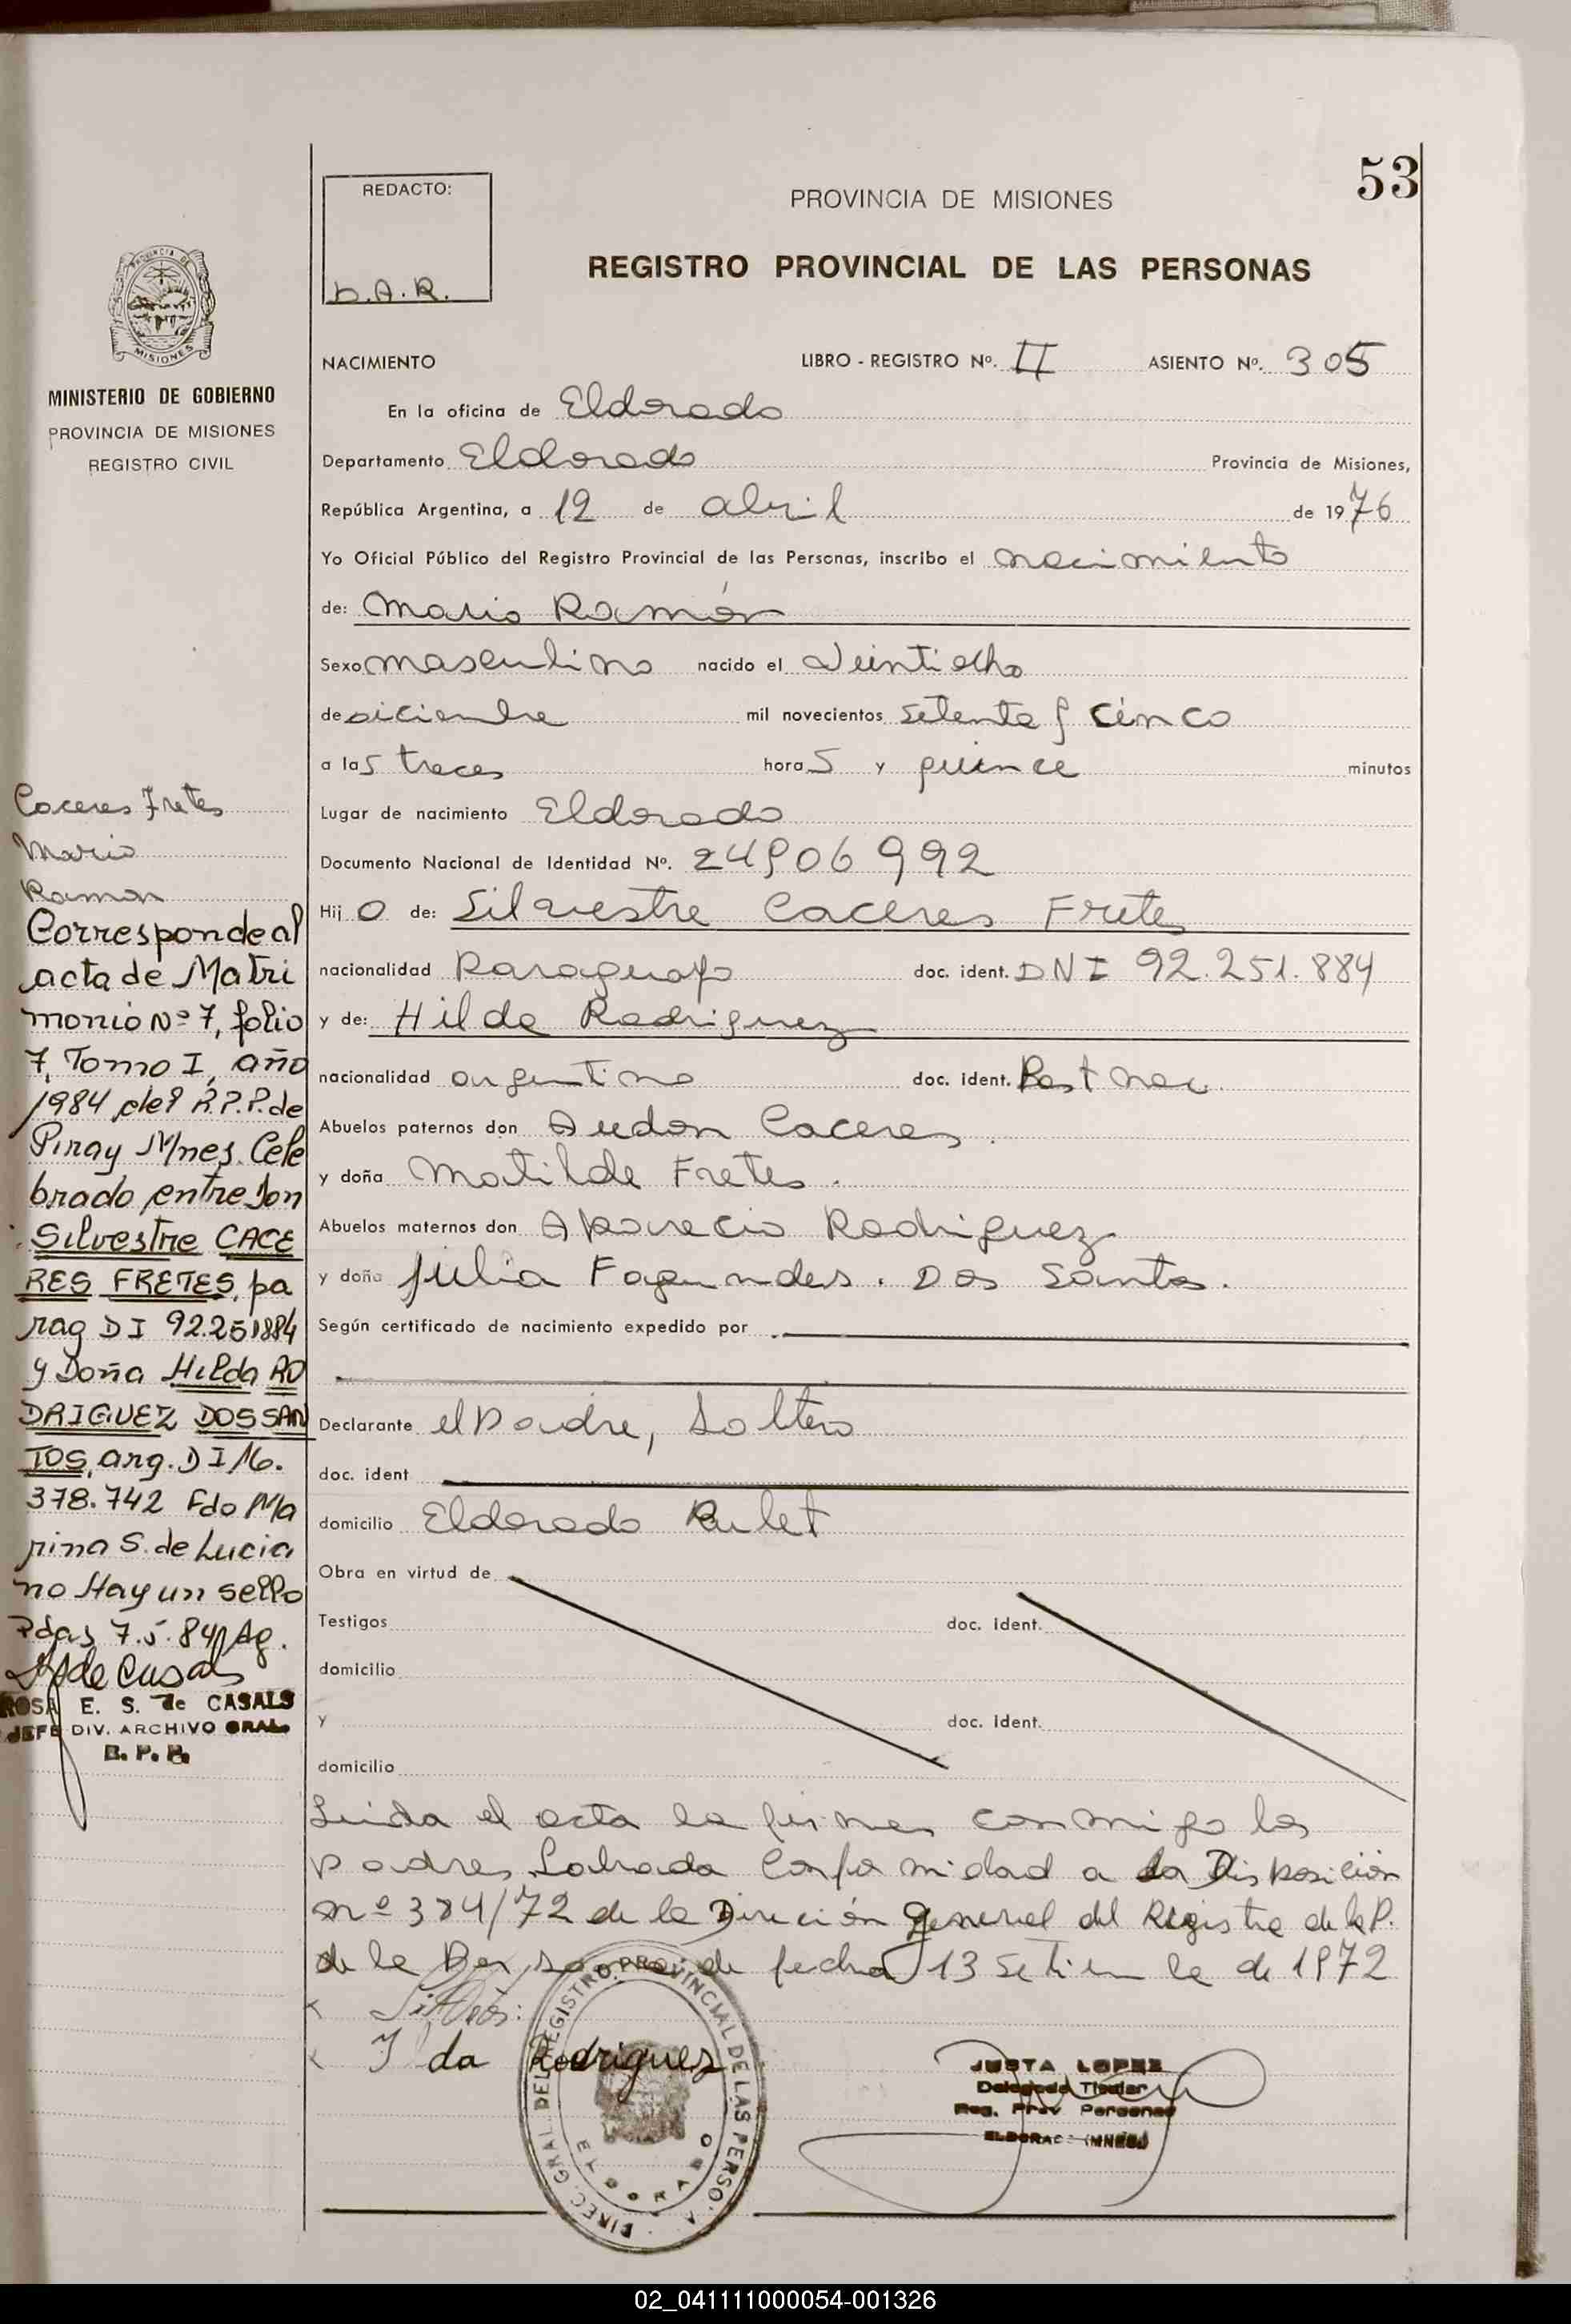 53
REDACTO:
D.A.R.
PROVINCIA DE MISIONES
REGISTRO PROVINCIAL DE LAS PERSONAS
PROVINCIA DE
MISIONES
MINISTERIO DE GOBIERNO
PROVINCIA DE MISIONES
REGISTRO CIVIL
NACIMIENTO LIBRO - REGISTRO Nº. II ASIENTO Nº. 305
En la oficina de Eldorado
Departamento Eldorado Provincia de Misiones,
República Argentina, a 12 de abril de 1976
Yo Oficial Público del Registro Provincial de las Personas, inscribo el nacimiento
de: Mario Ramón
Sexo masculino nacido el Veintiocho
de diciembre mil novecientos setenta y cinco
a las treces horas y quince minutos
Lugar de nacimiento Eldorado
Documento Nacional de Identidad Nº. 24906992
Hijo de: Silvestre Caceres Fretes
nacionalidad Paraguayo doc. ident. DNI 92.251.884
y de: Hilda Rodriguez
nacionalidad argentina doc. ident.
Abuelos paternos don Audon Caceres.
y doña Matilde Fretes.
Abuelos maternos don Aparecio Rodriguez
y doña Julia Fagundes. Dos Santos.
Según certificado de nacimiento expedido por
Declarante el Padre, Soltero
doc. ident
domicilio Eldorado
Obra en virtud de
Testigos doc. ident.
domicilio
y doc. ident.
domicilio
Leida el acta la firman conmigo los
padres Labrada Conformidad a la Disposición
nº 384/72 de la Direción general del Registro de la P.
de la Personas de fecha 13 Setiembre de 1972
Caceres Fretes
Mario
Ramon
Corresponde al
acta de Matri
monio Nº 7, folio
7, Tomo I, año
1984 del R.P.P. de
Piray Mnes. Cele
brado entre Don
Silvestre CACE
RES FRETES, pa
rag DI 92.251884
y Doña Hilda RO
DRIGUEZ DOS SAN
TOS, arg. DI 16.
378.742 Fdo Ma
rina S. de Lucia
no Hay un sello
Pdas 7.5.84
ROSA E. S. de CASALS
JEFE DIV. ARCHIVO GRAL.
R. P. P.
Ilda Rodriguez
DIREC. GRAL. DEL REGISTRO PROVINCIAL DE LAS PERSONAS
ELDORADO
JUSTA LOPEZ
Delegada Titular
Reg. Prov Personas
ELDORADO (MNES)
02_041111000054-001326